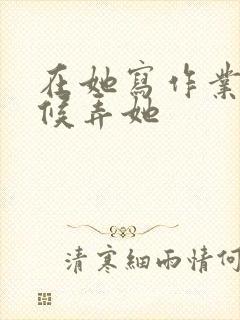 在她寫作業
候弄她
清寒細雨情何